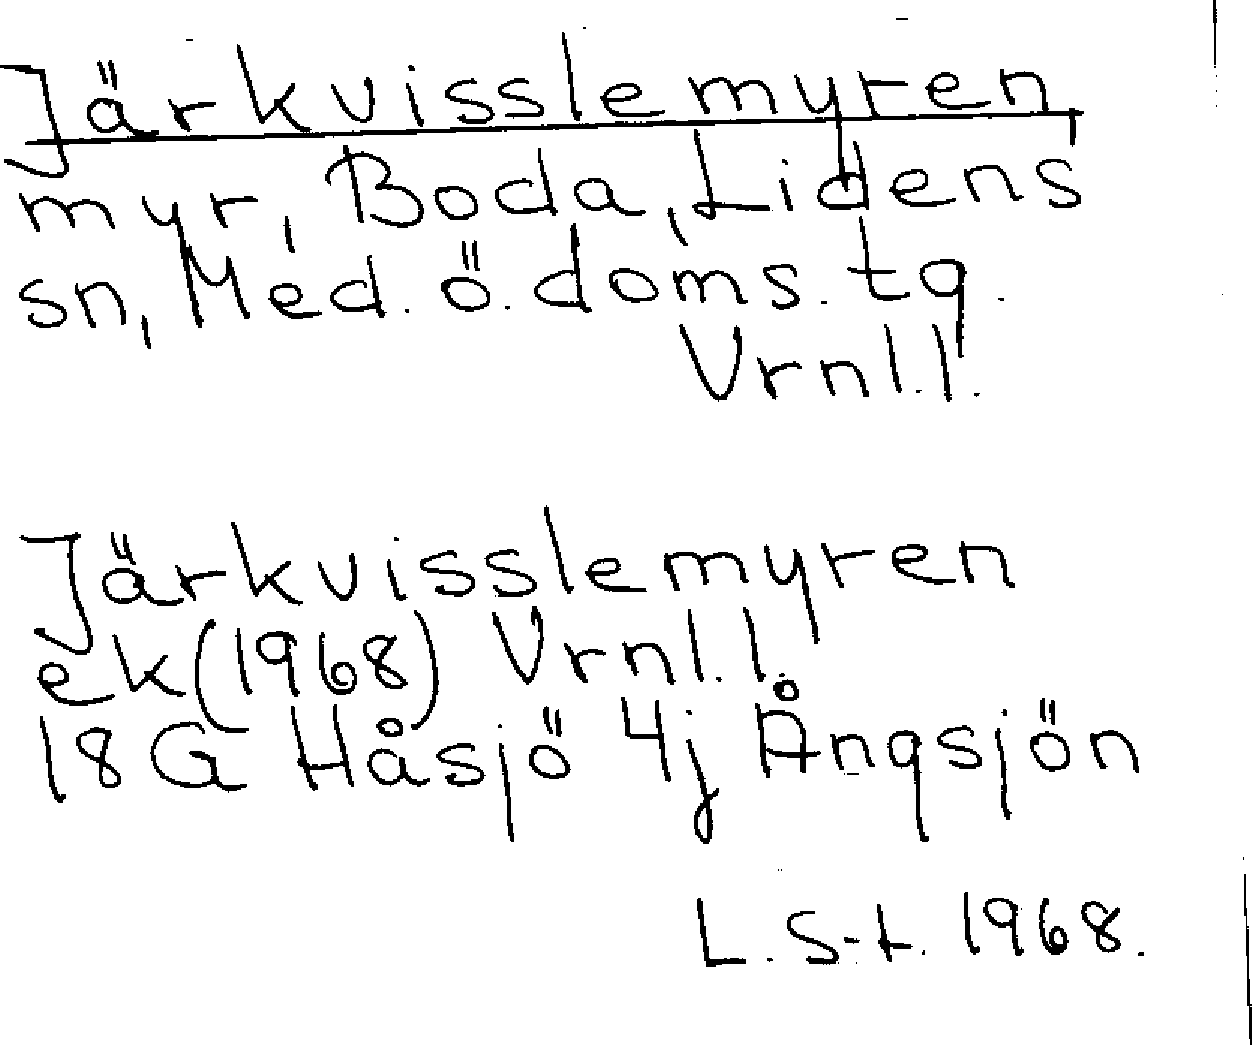 Järkvisslemyren,
myr, Boda, Lidens
sn, Med. ö. doms. tg.
Vrnl.l.
Järkvisslemyren
ek (1968) Vrnl.l.
18G Håsjö 4j Ångsjön
L. S-t. 1968.